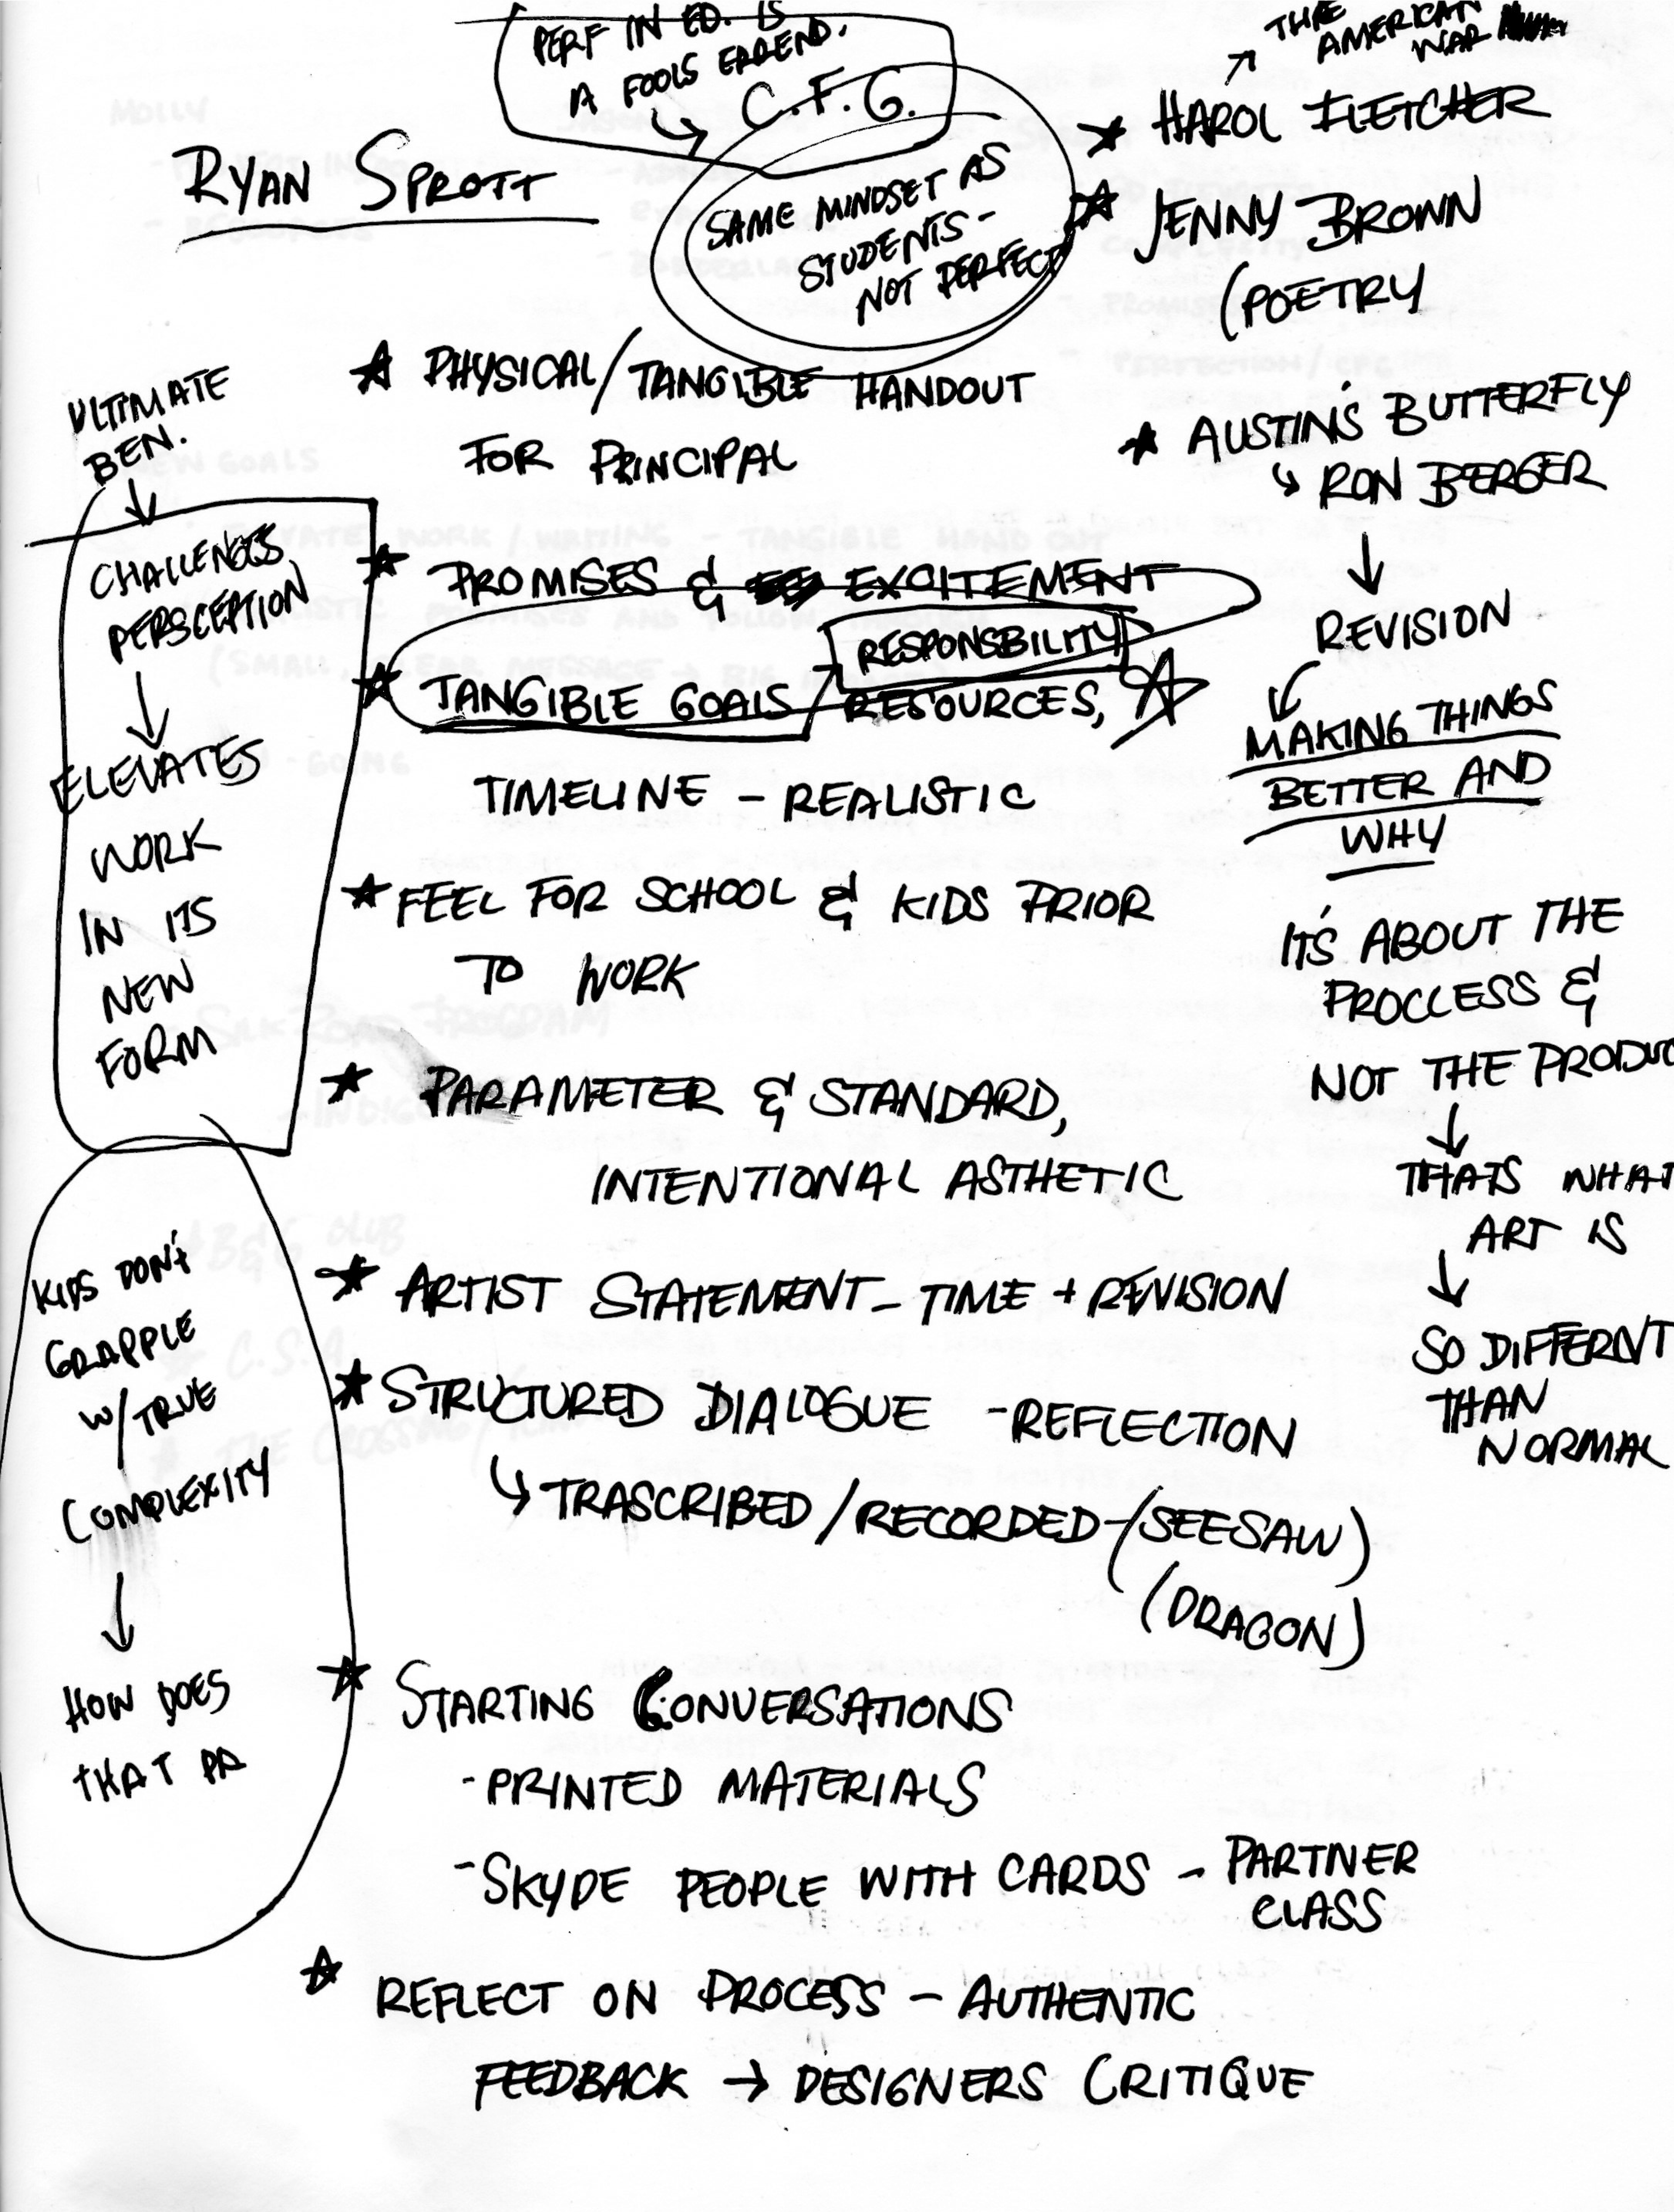 PERF IN ED. IS
A FOOLS ERREND.
C.F.G.
SAME MINDSET AS
STUDENTS -
NOT PERFECT
RYAN SPROTT
THE
AMERICAN
WAR
HAROL FLETCHER
JENNY BROWN
(POETRY
AUSTIN'S BUTTERFLY
RON BERGER
REVISION
MAKING THINGS
BETTER AND
WHY
IT'S ABOUT THE
PROCLESS &
NOT THE PRODUC
THATS WHAT
ART IS
SO DIFFERNT
THAN
NORMAL
ULTIMATE
BEN.
CHALLENGES
PERSCEPTION
ELEVATES
WORK
IN ITS
NEW
FORM
KIDS DON'T
GRAPPLE
W/TRUE
COMPLEXITY
HOW DOES
THAT PR
PHYSICAL/TANGIBLE HANDOUT
FOR PRINCIPAL
PROMISES & EXCITEMENT
RESPONSBILITY
TANGIBLE GOALS/RESOURCES,
TIMELINE - REALISTIC
FEEL FOR SCHOOL & KIDS PRIOR
TO WORK
PARAMETER & STANDARD,
INTENTIONAL ASTHETIC
ARTIST STATEMENT - TIME + REVISION
STRUCTURED DIALOGUE - REFLECTION
TRASCRIBED/RECORDED - (SEESAW)
(DRAGON)
STARTING CONVERSATIONS
- PRINTED MATERIALS
- SKYPE PEOPLE WITH CARDS - PARTNER
CLASS
REFLECT ON PROCESS - AUTHENTIC
FEEDBACK → DESIGNERS CRITIQUE